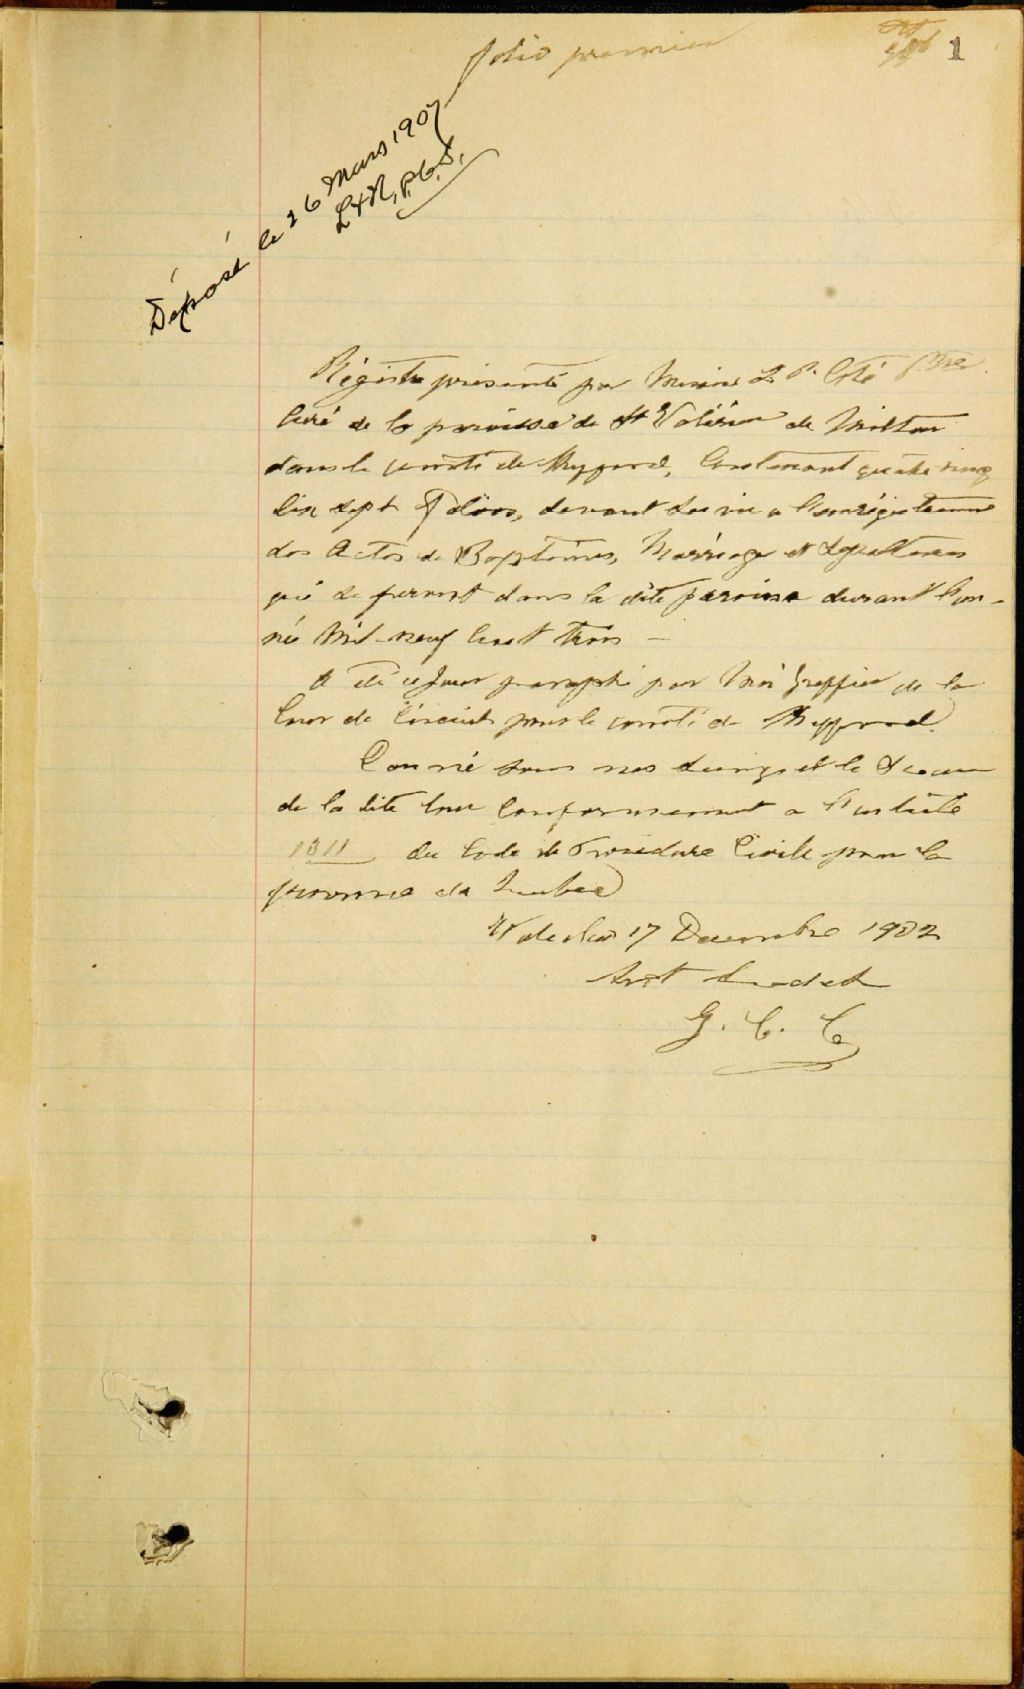 folio premier
1
Déposé le 26 Mars 1907
Régistre présenté par Messire L. P. Coté Ptre
Curé de la paroisse de St Valérien de Milton
dans le comté de Shefford, Contenant quatre vingt
dix sept folios, devant servir a l'enrégistrement
des Actes de Baptêmes, Mariage et Sépultures
qui se feront dans la dite paroisse durant l'an-
née Mil-neuf Cent trois —
A été ce Jour paraphé par Moi Greffier de la
Cour de Circuit pour le comté de Shefford.
Donné sous mes seings et le Sceau
de la dite Cour Conformement a l'article
1311 du Code de Procédure Civile pour la
province de Quebec
Waterloo 17 Decembre 1902
G. C. C